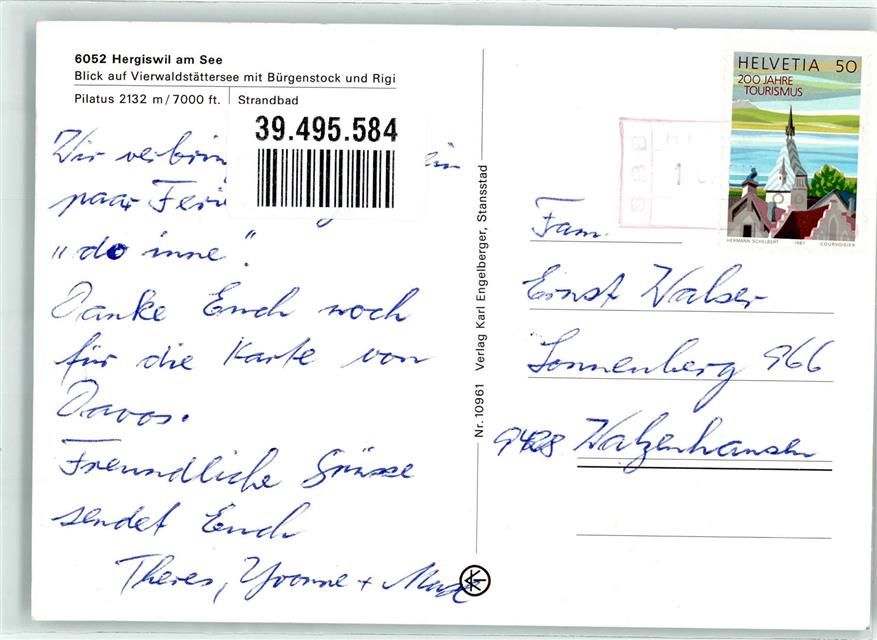 6052 Hergiswil am See
Blick auf Vierwaldstättersee mit Bürgenstock und Rigi
Pilatus 2132 m/7000 ft. Strandbad
39.495.584
Wir verbrin
paar Feri
"do inne".
Danke Euch noch
für die Karte von
Davos.
Freundliche Grüsse
sendet Euch
Theres, Yvonne +
Nr. 10961 Verlag Karl Engelberger, Stansstad
HELVETIA 50
200 JAHRE
TOURISMUS
HERMANN SCHELBERT 1987 COURVOISIER
SBB
Fam.
Ernst Walser
Sonnenberg 966
9428 Walzenhausen